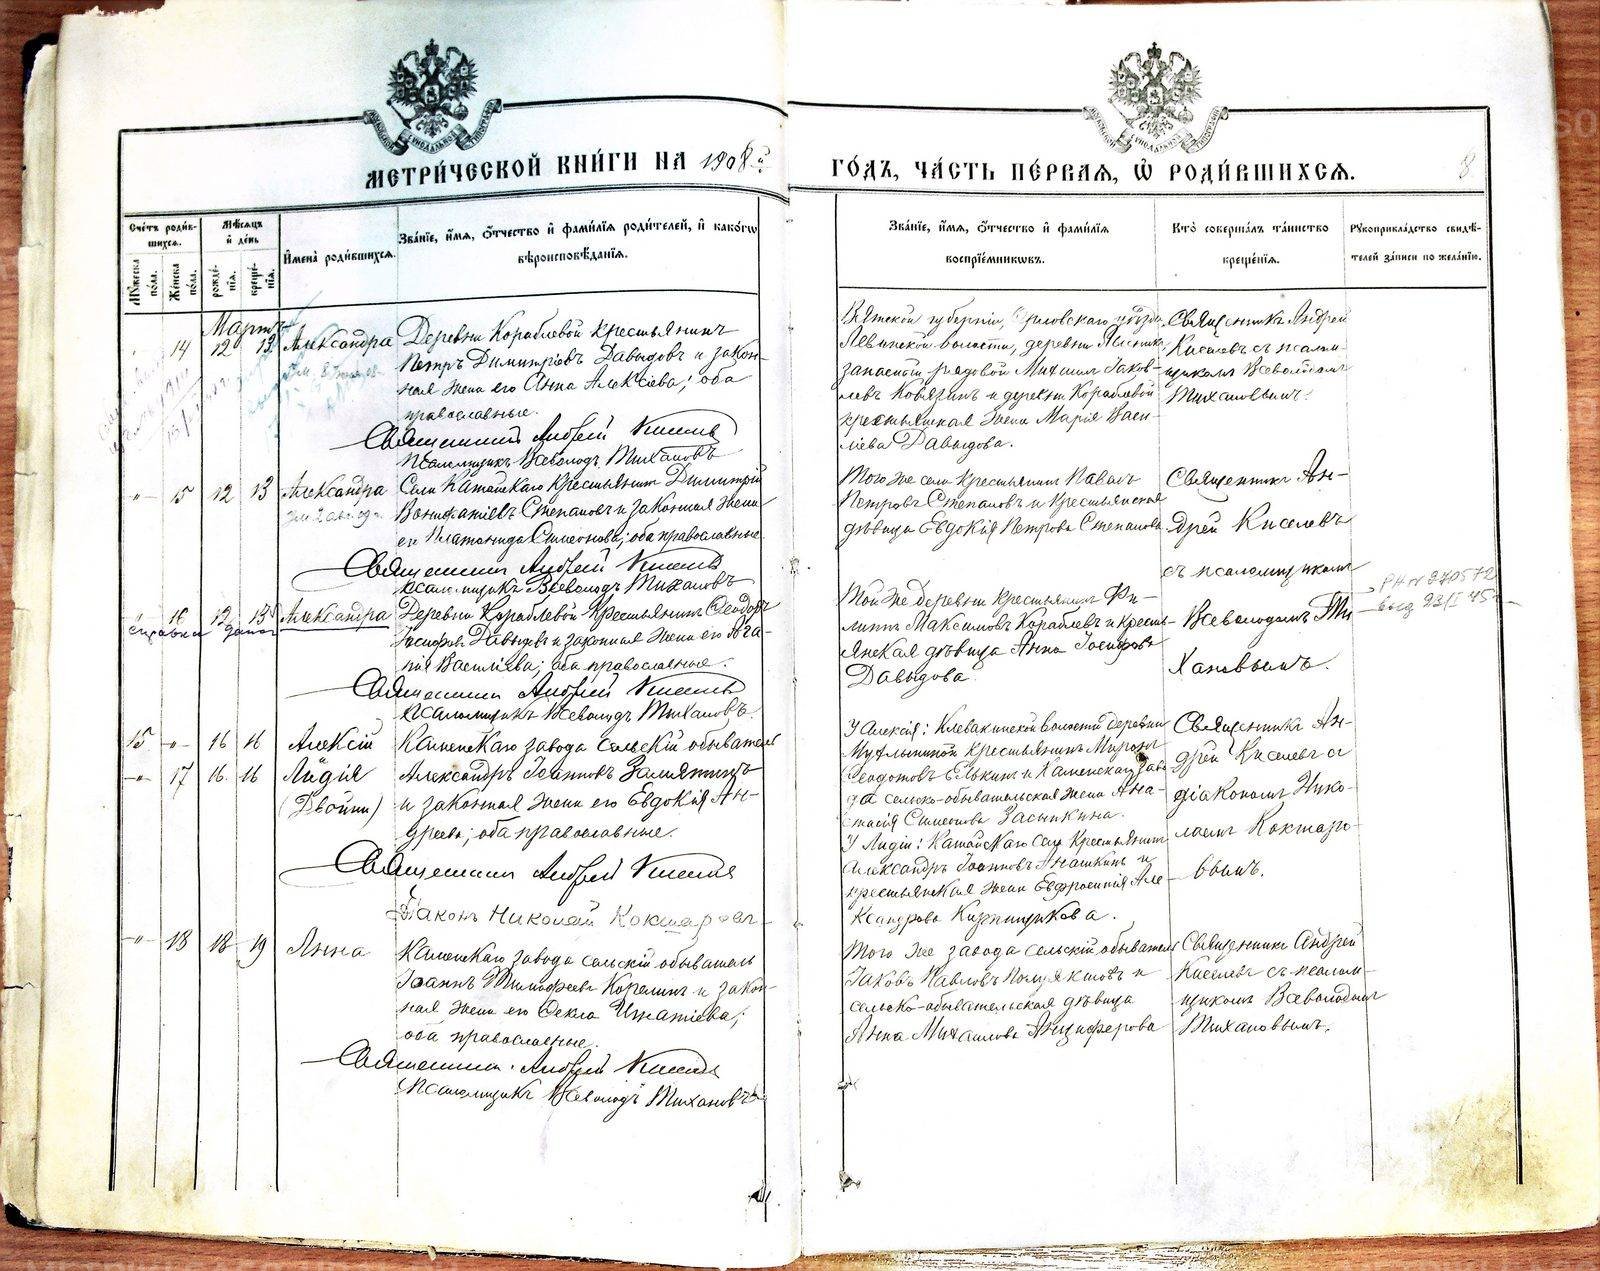 МЕТРИ́ЧЕСКОЙ КНИ́ГИ НА 1908й
ГО́ДЪ, ЧА́СТЬ ПЕ́РВАЯ, Ѽ РОДИ́ВШИХСЯ.
8
Сче́тъ роди́в-
шихся.
Мꙋ́жеска по́ла.
Же́нска по́ла.
Мѣ́сяцъ и́ де́нь
рожде́-
нїя.
креще́-
нїя.
И́мена̀ роди́вшихся.
Зва́нїе, и́мя, ѻ́тчество и́ фами́лїя роди́телей, и́ како́гѡ
вѣроисповѣ́данїя.
Зва́нїе, и́мя, ѻ́тчество и́ фами́лїя
воспрїе́мниковъ.
Кто̀ соверша́лъ та́инство
креще́нїя.
Рꙋкоприкла́дство свидѣ́-
телей за́писи по жела́нїю.
Мартъ
14 12 13 Александра
Деревни Кораблевой крестьянинъ
Петръ Димитріевъ Давыдовъ и закон-
ная жена его Анна Алексіева; оба
православные.
Священникъ Андрей Киселевъ
Псаломщикъ Всеволодъ Тихановъ
Вятской губерніи, Орловскаго уѣзда
Левинской волости, деревни
запасный рядовой Михаилъ Іаков-
левъ Ковязинъ и деревни Кораблевой
крестьянская жена Марія Васи-
ліева Давыдова.
Священникъ Андрей
Киселевъ съ псалом-
щикомъ Всеволодомъ
Тихановымъ.
-"- 15 12 13 Александра
Села Катайскаго крестьянинъ Димитрій
Вонифатіевъ Степановъ и законная жена
его Платонида Симеонова; оба православные
Священникъ Андрей Киселевъ
псаломщикъ Всеволодъ Тихановъ
Того же села крестьянинъ Павелъ
Петровъ Степановъ и крестьянская
дѣвица Евдокія Петрова Степанова
Священникъ Ан-
дрей Киселевъ
съ псаломщикомъ
Всеволодомъ Ти
хановымъ.
16 12 13 Александра
справка
Деревни Кораблевой крестьянинъ Ѳеодоръ
Іосифовъ Давыдовъ и законная жена его Ага-
пія Василіева; оба православные.
Священникъ Андрей Киселевъ
псаломщикъ Всеволодъ Тихановъ.
Той же деревни крестьянинъ Фи-
липпъ Максимовъ Кораблевъ и кресть-
янская дѣвица Анна Іосифова
Давыдова.
РН № 270572
выд 23/I 45
15 -"- 16 16 Алексій
-"- 17 16 16 Лидія
(Двойни)
Каменскаго завода сельскій обыватель
Александръ Іоанновъ Замятинъ
и законная жена его Евдокія Ан-
дреева; оба православные.
Священникъ Андрей Киселевъ
Діаконъ Николай Кокшаровъ
У Алексія: Клевакинской волости деревни
Муфлыниной крестьянинъ Миронъ
Ѳеодотовъ Елькинъ и Каменскаго заво-
да сельско-обывательская жена Ана-
стасія Симеонова Засыпкина.
У Лидіи: Катайскаго села крестьянинъ
Александръ Іоанновъ Анашкинъ и
крестьянская жена Евфросинія Але-
ксандрова Кирпищикова.
Священникъ Ан-
дрей Киселевъ съ
діакономъ Нико-
лаемъ Кокшаро-
вымъ.
-"- 18 18 19 Анна
Каменскаго завода сельскій обыватель
Іоаннъ Тимофеевъ Корелинъ и закон-
ная жена его Ѳекла Игнатіева;
оба православные.
Священникъ Андрей Киселевъ
Псаломщикъ Всеволодъ Тихановъ
Того же завода сельскій обыватель
Іаковъ Павловъ и
сельско-обывательская дѣвица
Анна Михаилова Анциферова
Священникъ Андрей
Киселевъ съ псалом-
щикомъ Всеволодомъ
Тихановымъ.